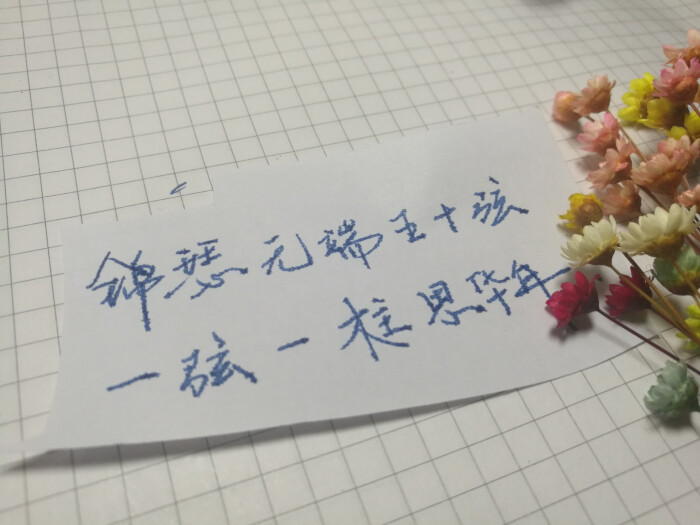 锦瑟无端五十弦
一弦一柱思华年